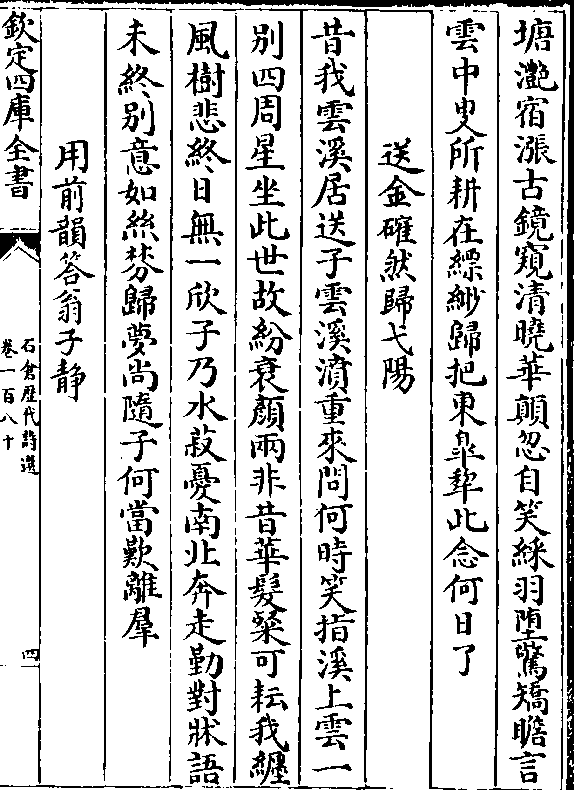 塘灔宿漲古鏡窺清曉華顛忽自笑綵羽墮驚矯瞻言
雲中叟所耕在縹緲歸把東臯犂此念何日了
送金確然歸弋陽
昔我雲溪居送子雲溪濆重來問何時笑指溪上雲一
别四周星坐此世故紛衰顏兩非昔華髮粲可耘我纏
風樹悲終日無一欣子乃水菽憂南北奔走勤對牀語
未終别意如絲棼歸夢尚隨子何當歎離羣
用前韻答翁子静
欽定四庫全書
石倉歴代詩選
卷一百八十
四